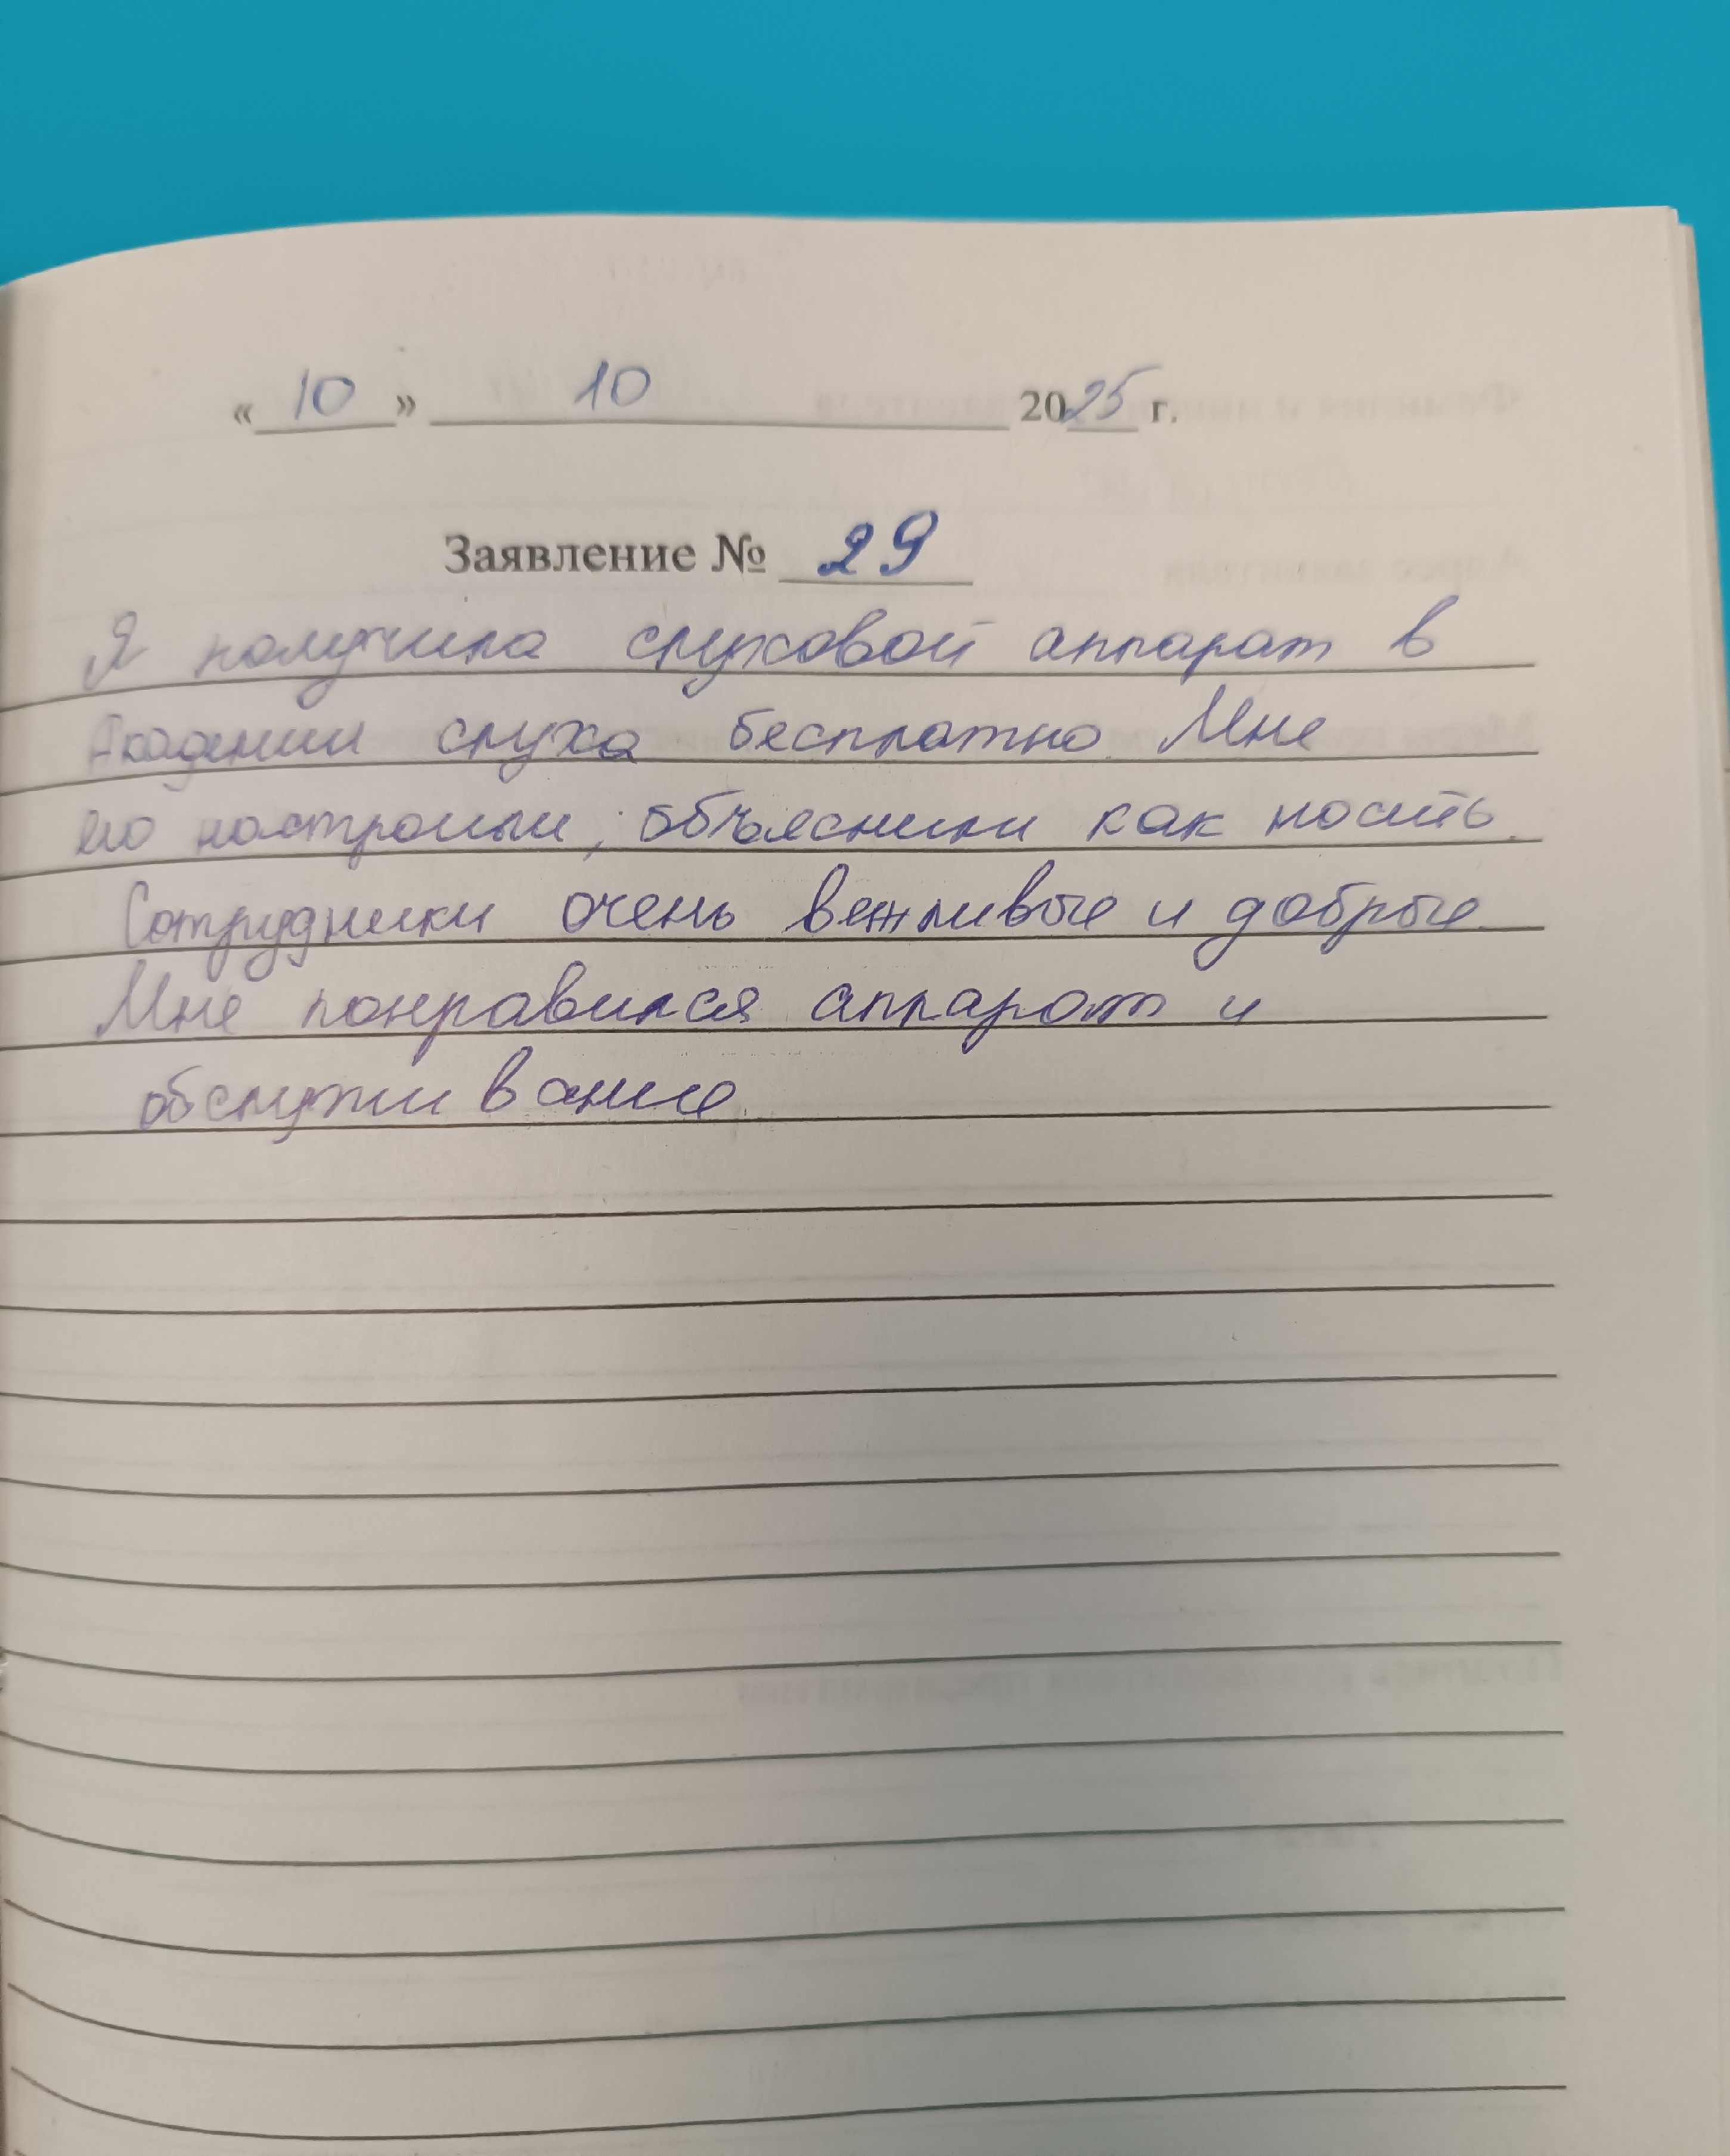 « 10 » 10 2025 г.
Заявление № 29
Я получила слуховой аппарат в
Академии слуха бесплатно. Мне
его настроили, объяснили как носить.
Сотрудники очень вежливые и добрые.
Мне понравился аппарат и
обслуживание.